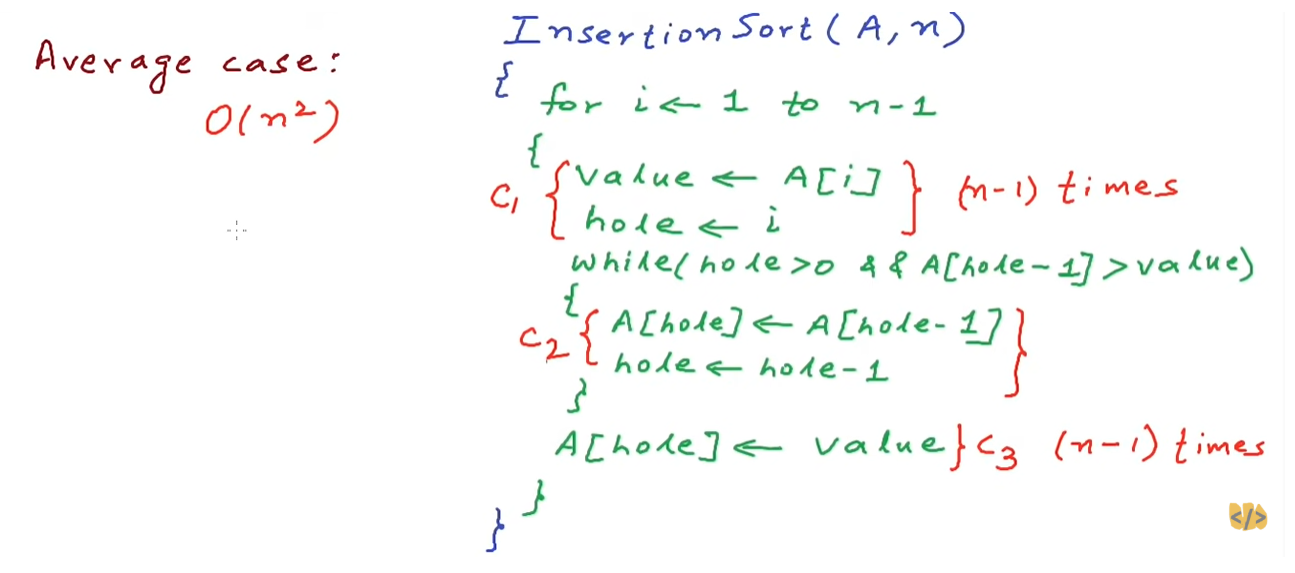 Average case:
O(n²)
InsertionSort(A,n)
{
for i ← 1 to n-1
{
c₁ { value ← A[i] } (n-1) times
hole ← i
while(hole>0 && A[hole-1]>value)
{
c₂ { A[hole] ← A[hole-1] }
hole ← hole-1
}
A[hole] ← value } c₃ (n-1) times
}
}
</>